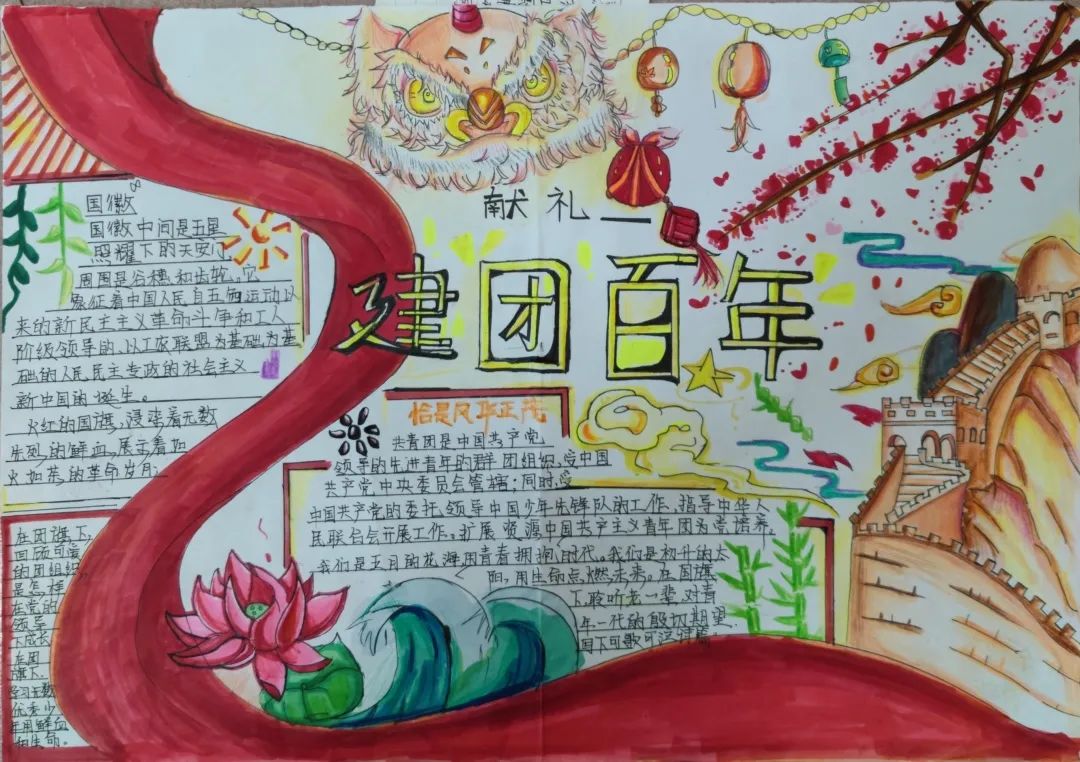 献礼一
建团百年
国徽
国徽中间是五星
照耀下的天安门
周围是谷穗和齿轮,它
象征着中国人民自五四运动以
来的新民主主义革命斗争和工人
阶级领导的、以工农联盟为基础为基
础的人民民主专政的社会主义
新中国的诞生。
火红的国旗,浸染着无数
先烈的鲜血,展示着如
火如荼的革命岁月。
在团旗下,
回顾可爱
的团组织
是怎样
在党的
领导
下成长
在团
旗下,
学习无数
优秀少
年用鲜血
和生命。
恰是风华正茂
共青团是中国共产党
领导的先进青年的群团组织,受中国
共产党中央委员会管辖;同时,受
中国共产党的委托领导中国少年先锋队的工作、指导中华人
民联合会开展工作。扩展资源中国共产主义青年团为党培养。
我们是五月的花海用青春拥抱时代。我们是初升的太
阳,用生命点燃未来。在国旗
下,聆听老一辈,对青
年一代的殷切期望
国下可歌可泣